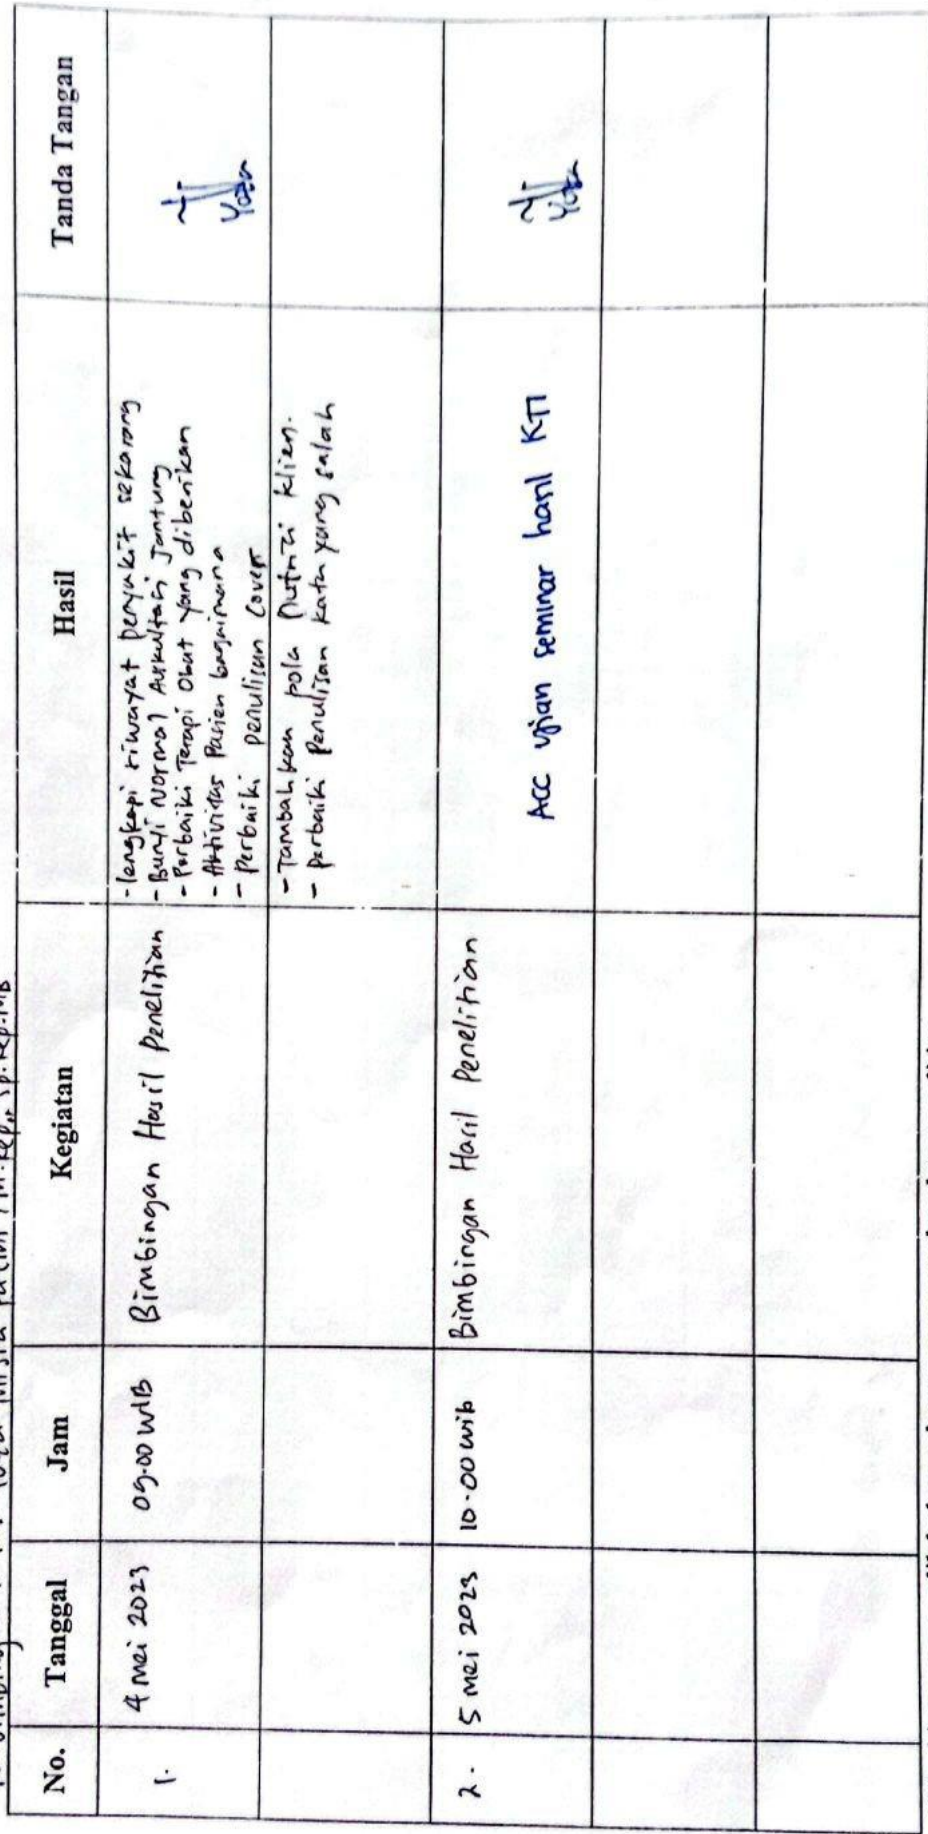 No. Tanggal Jam Kegiatan Hasil Tanda Tangan
1. 4 mei 2023 09.00 WIB Bimbingan Hasil Penelitian
- lengkapi riwayat penyakit sekarang
- Bunyi Normal Auskultasi Jantung
- Perbaiki Terapi Obat yang diberikan
- Aktivitas Pasien bagaimana
- Perbaiki penulisan Cover
- Tambahkan pola Nutrisi klien.
- perbaiki Penulisan kata yang salah
Yoza
2. 5 mei 2023 10.00 wib Bimbingan Hasil Penelitian
Acc ujian seminar hasil KTI
Yoza